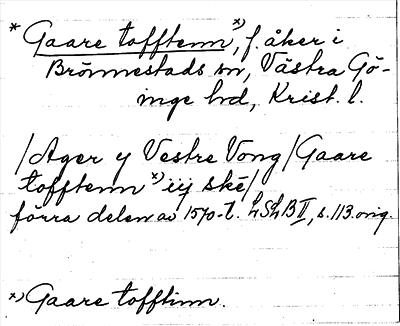 * Gaare tofftenn *), f. åker i
Brönnestads sn, Västra Gö-
inge hd, Krist. l.
/Ager y Vestre Vong/Gaare
tofftenn *) iij ske/
förra delen av 1570-t. LSLB II, s. 113. orig.
*) Gaare tofftinn.